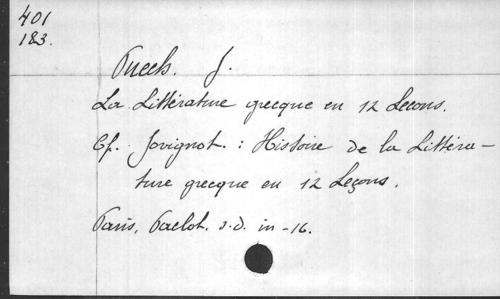 401
183.
Puech. J.
La Littérature grecque en 12 Lecons.
Cf. Jovignot. : Histoire de la Littéra-
ture grecque en 12 Leçons.
Paris, Paclot. s.d. in-16.